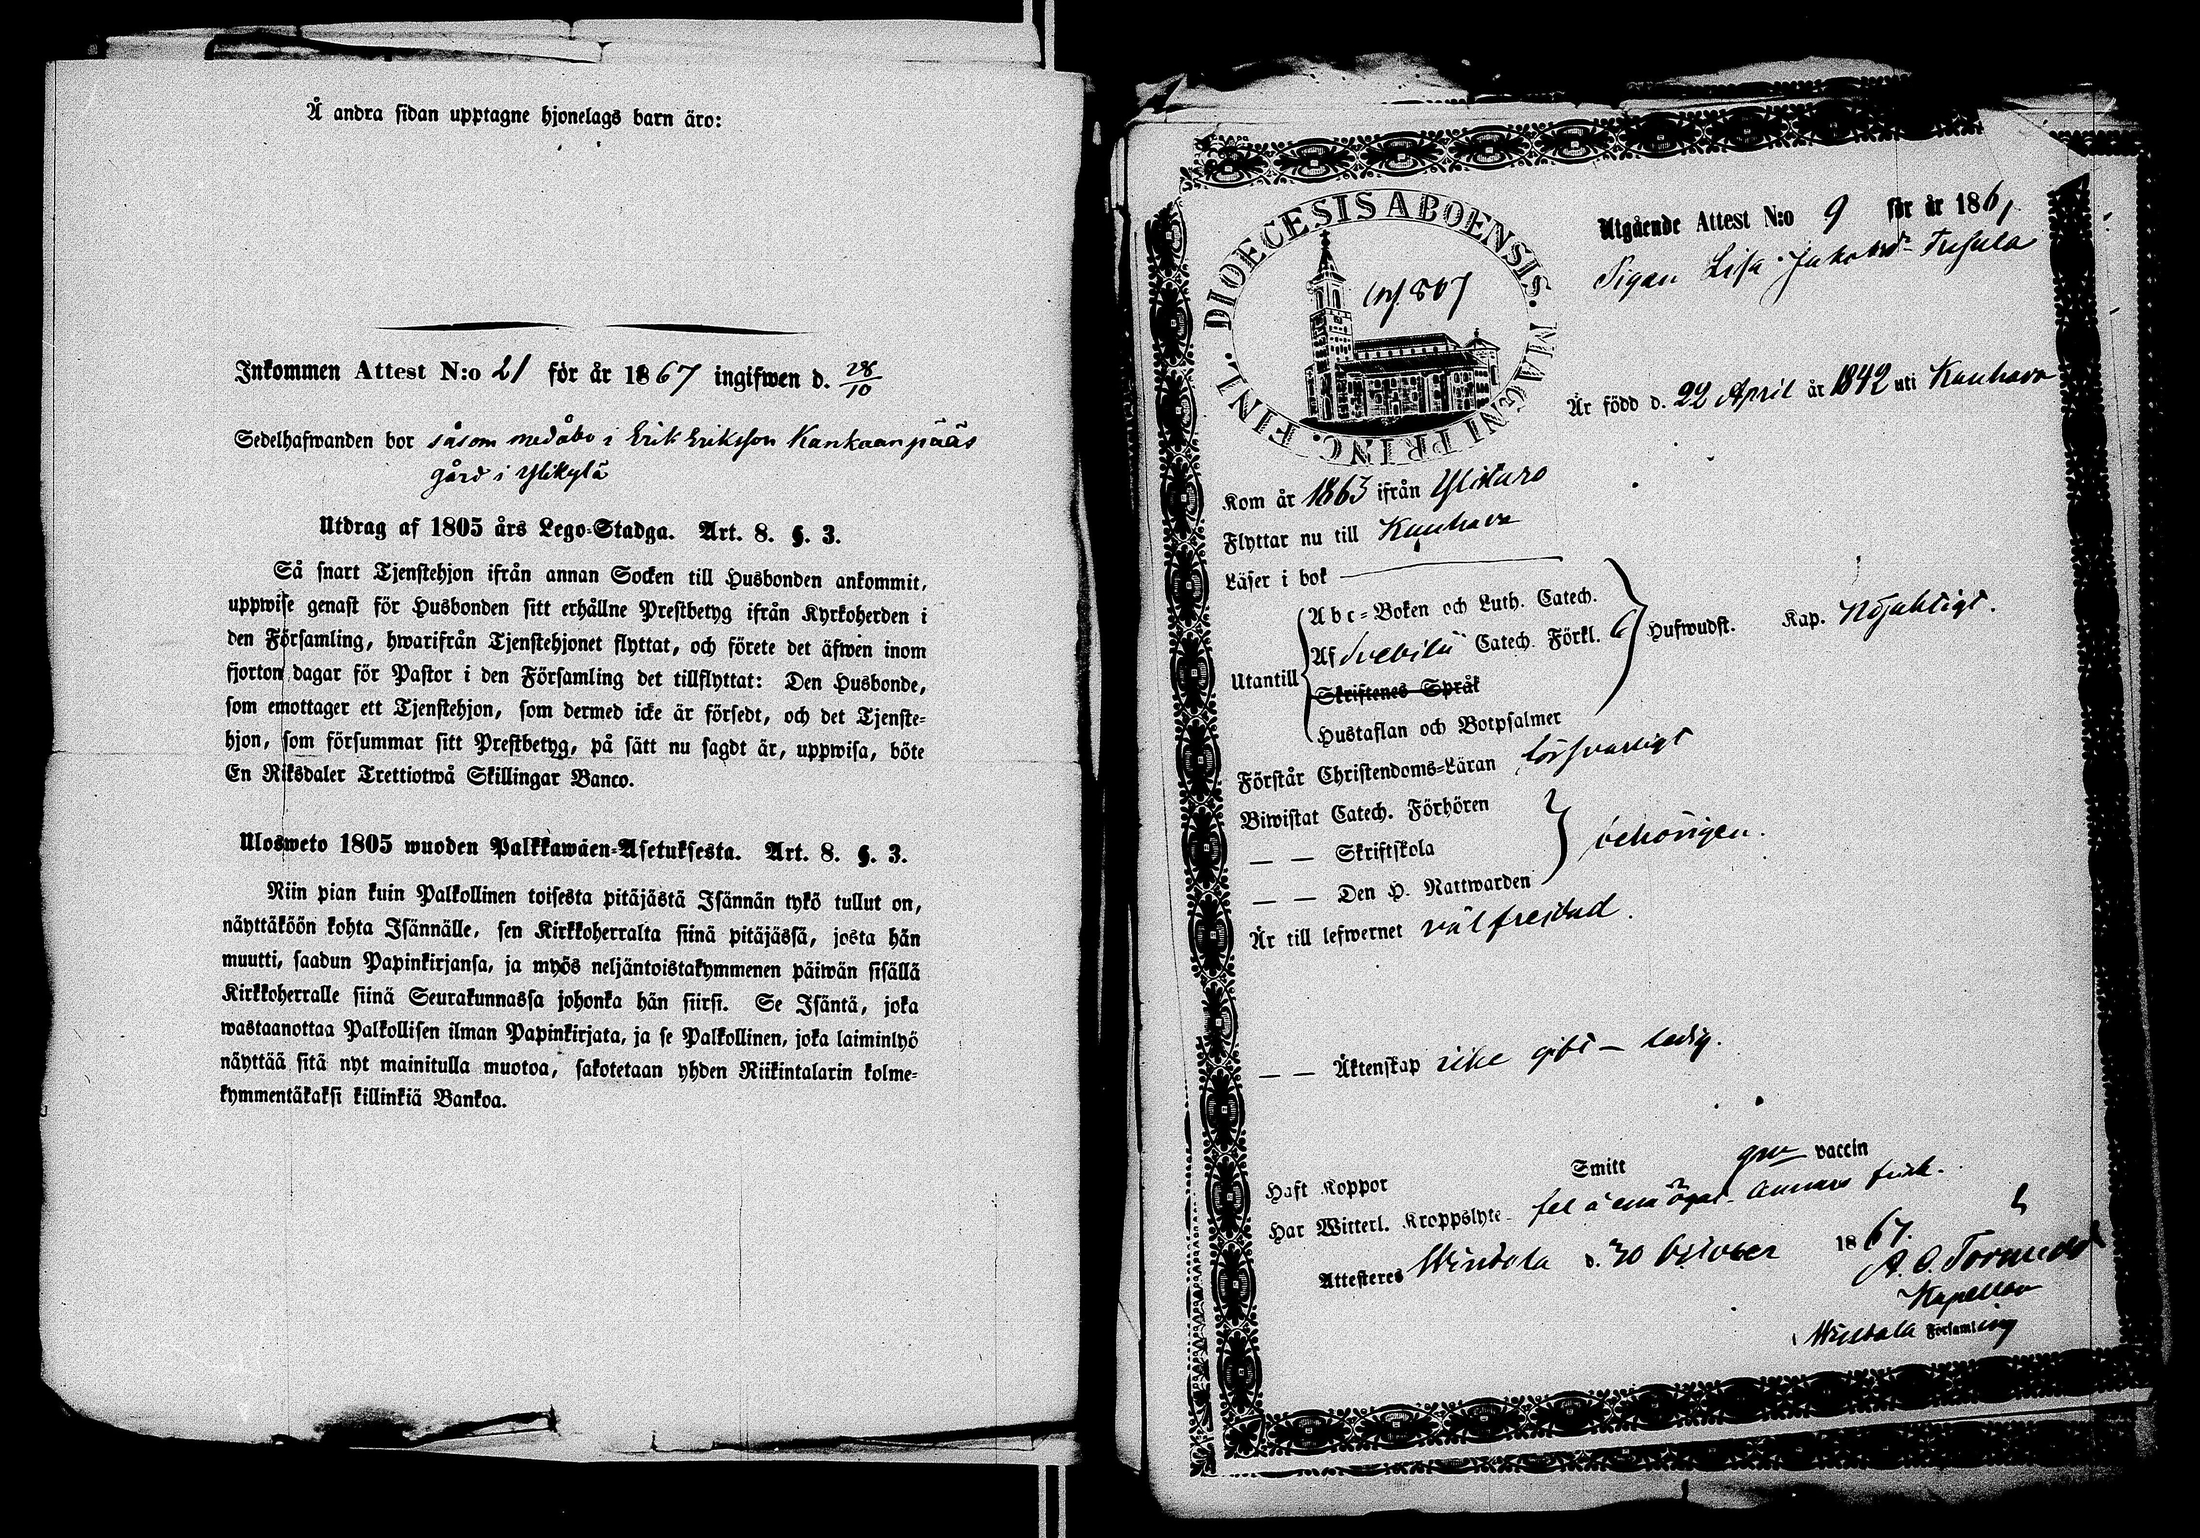 Å andra sidan upptagne hjonelags barn äro:
Inkommen Attest N:o 21 för år 1867 ingifwen d. 28/10
Sedelhafwanden bor såsom medåbo i Erik Eriksson Kankaanpääs
gård i Ylikylä
Utdrag af 1805 års Lego-Stadga. Art. 8. §. 3.
Så snart Tjenstehjon ifrån annan Socken till Husbonden ankommit,
uppwise genast för Husbonden sitt erhållne Prestbetyg ifrån Kyrkoherden i
den Församling, hwarifrån Tjenstehjonet flyttat, och förete det äfwen inom
fjorton dagar för Pastor i den Församling det tillflyttat: Den Husbonde,
som emottager ett Tjenstehjon, som dermed icke är försedt, och det Tjenste-
hjon, som försummar sitt Prestbetyg, på sätt nu sagdt är, uppwisa, böte
En Riksdaler Trettiotwå Skillingar Banco.
Ulosweto 1805 wuoden Palkkawäen-Asetuksesta. Art. 8. §. 3.
Niin pian kuin Palkollinen toisesta pitäjästä Isännän tykö tullut on,
näyttäköön kohta Isännälle, sen Kirkkoherralta siinä pitäjässä, josta hän
muutti, saadun Papinkirjansa, ja myös neljäntoistakymmenen päiwän sisällä
Kirkkoherralle siinä Seurakunnassa johonka hän siirsi. Se Isäntä, joka
wastaanottaa Palkollisen ilman Papinkirjata, ja se Palkollinen, joka laiminlyö
näyttää sitä nyt mainitulla muotoa, sakotetaan yhden Riikintalarin kolme-
kymmentäkaksi killinkiä Bankoa.
DIOECESIS ABOENSIS. MAGNI PRINC. FINL.
Utgående Attest N:o 9 för år 186
Pigan Lisa Jakobsdr
Är född d. 22 April år 1842 uti Kauhava
Kom år 1863 ifrån Ylistaro
Flyttar nu till Kauhava
Läser i bok
Utantill
Abc-Boken och Luth. Catech.
Af Svebilii Catech. Förkl.
Skriftenes Språk
Hustaflan och Botpsalmer
Hufwudst. Kap. Nöjaktigt.
Förstår Christendoms-Läran försvarligt
Biwistat Catech. Förhören
— — Skriftskola
— — Den H. Nattwarden
behörigen.
Är till lefwernet välfrejdad.
— — Äktenskap icke gift – ledig.
Haft Koppor Smitt vaccin
Har Witterl. Kroppslyte fel å ena ögat. annars frisk.
Attesteras d. 30 October 1867.
Kapellan
Församling